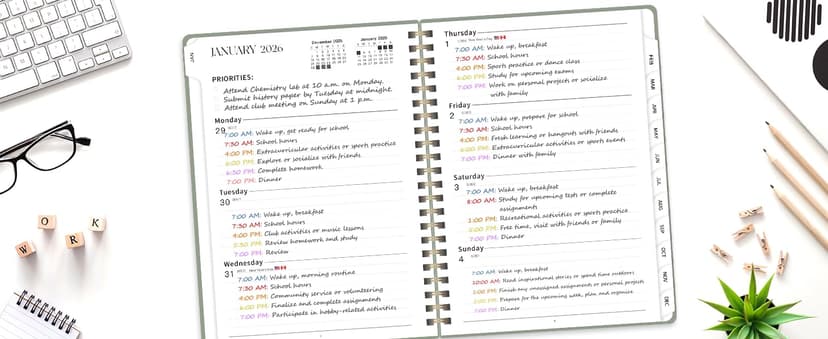 JAN
JANUARY 2026
December 2025
January 2026
PRIORITIES:
Attend Chemistry lab at 10 a.m. on Monday.
Submit history paper by Tuesday at midnight.
Attend club meeting on Sunday at 1 p.m.
Monday
29
7:00 AM: Wake up, get ready for school
7:30 AM: School hours
4:00 PM: Extracurricular activities or sports practice
6:00 PM: Explore or socialize with friends
6:30 PM: Complete homework
7:00 PM: Dinner
Tuesday
30
7:00 AM: Wake up, breakfast
7:30 AM: School hours
4:00 PM: Club activities or music lessons
5:30 PM: Review homework and study
7:00 PM: Review
Wednesday
31 New Year's Eve
7:00 AM: Wake up, morning routine
7:30 AM: School hours
4:00 PM: Community service or volunteering
6:00 PM: Finalize and complete assignments
7:00 PM: Participate in hobby-related activities
Thursday
1 New Year's Day
7:00 AM: Wake up, breakfast
7:30 AM: School hours
4:00 PM: Sports practice or dance class
6:00 PM: Study for upcoming exams
7:00 PM: Work on personal projects or socialize
with family
Friday
2
7:00 AM: Wake up, prepare for school
7:30 AM: School hours
4:00 PM: Fresh learning or hangouts with friends
6:00 PM: Extracurricular activities or sports events
7:00 PM: Dinner with family
Saturday
3
7:00 AM: Wake up, breakfast
8:00 AM: Study for upcoming tests or complete
assignments
1:00 PM: Recreational activities or sports practice
6:00 PM: Free time, visit with friends or family
7:00 PM: Dinner
Sunday
4
7:00 AM: Wake up, breakfast
10:00 AM: Read inspirational stories or spend time outdoors
1:00 PM: Finish any unassigned assignments or personal projects
2:00 PM: Prepare for the upcoming week, plan and organize
7:00 PM: Dinner
FEB
MAR
APR
MAY
JUN
JUL
AUG
SEP
OCT
NOV
DEC
WORK